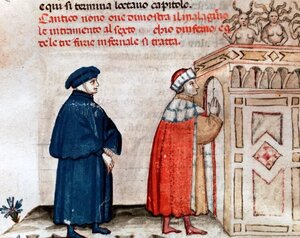 equi si termina loctauo capitolo.
Cantico nono oue dimostra il mal agiu
le intramento al sexto chio dinferno eq
de le tre furie infernale si tratta.